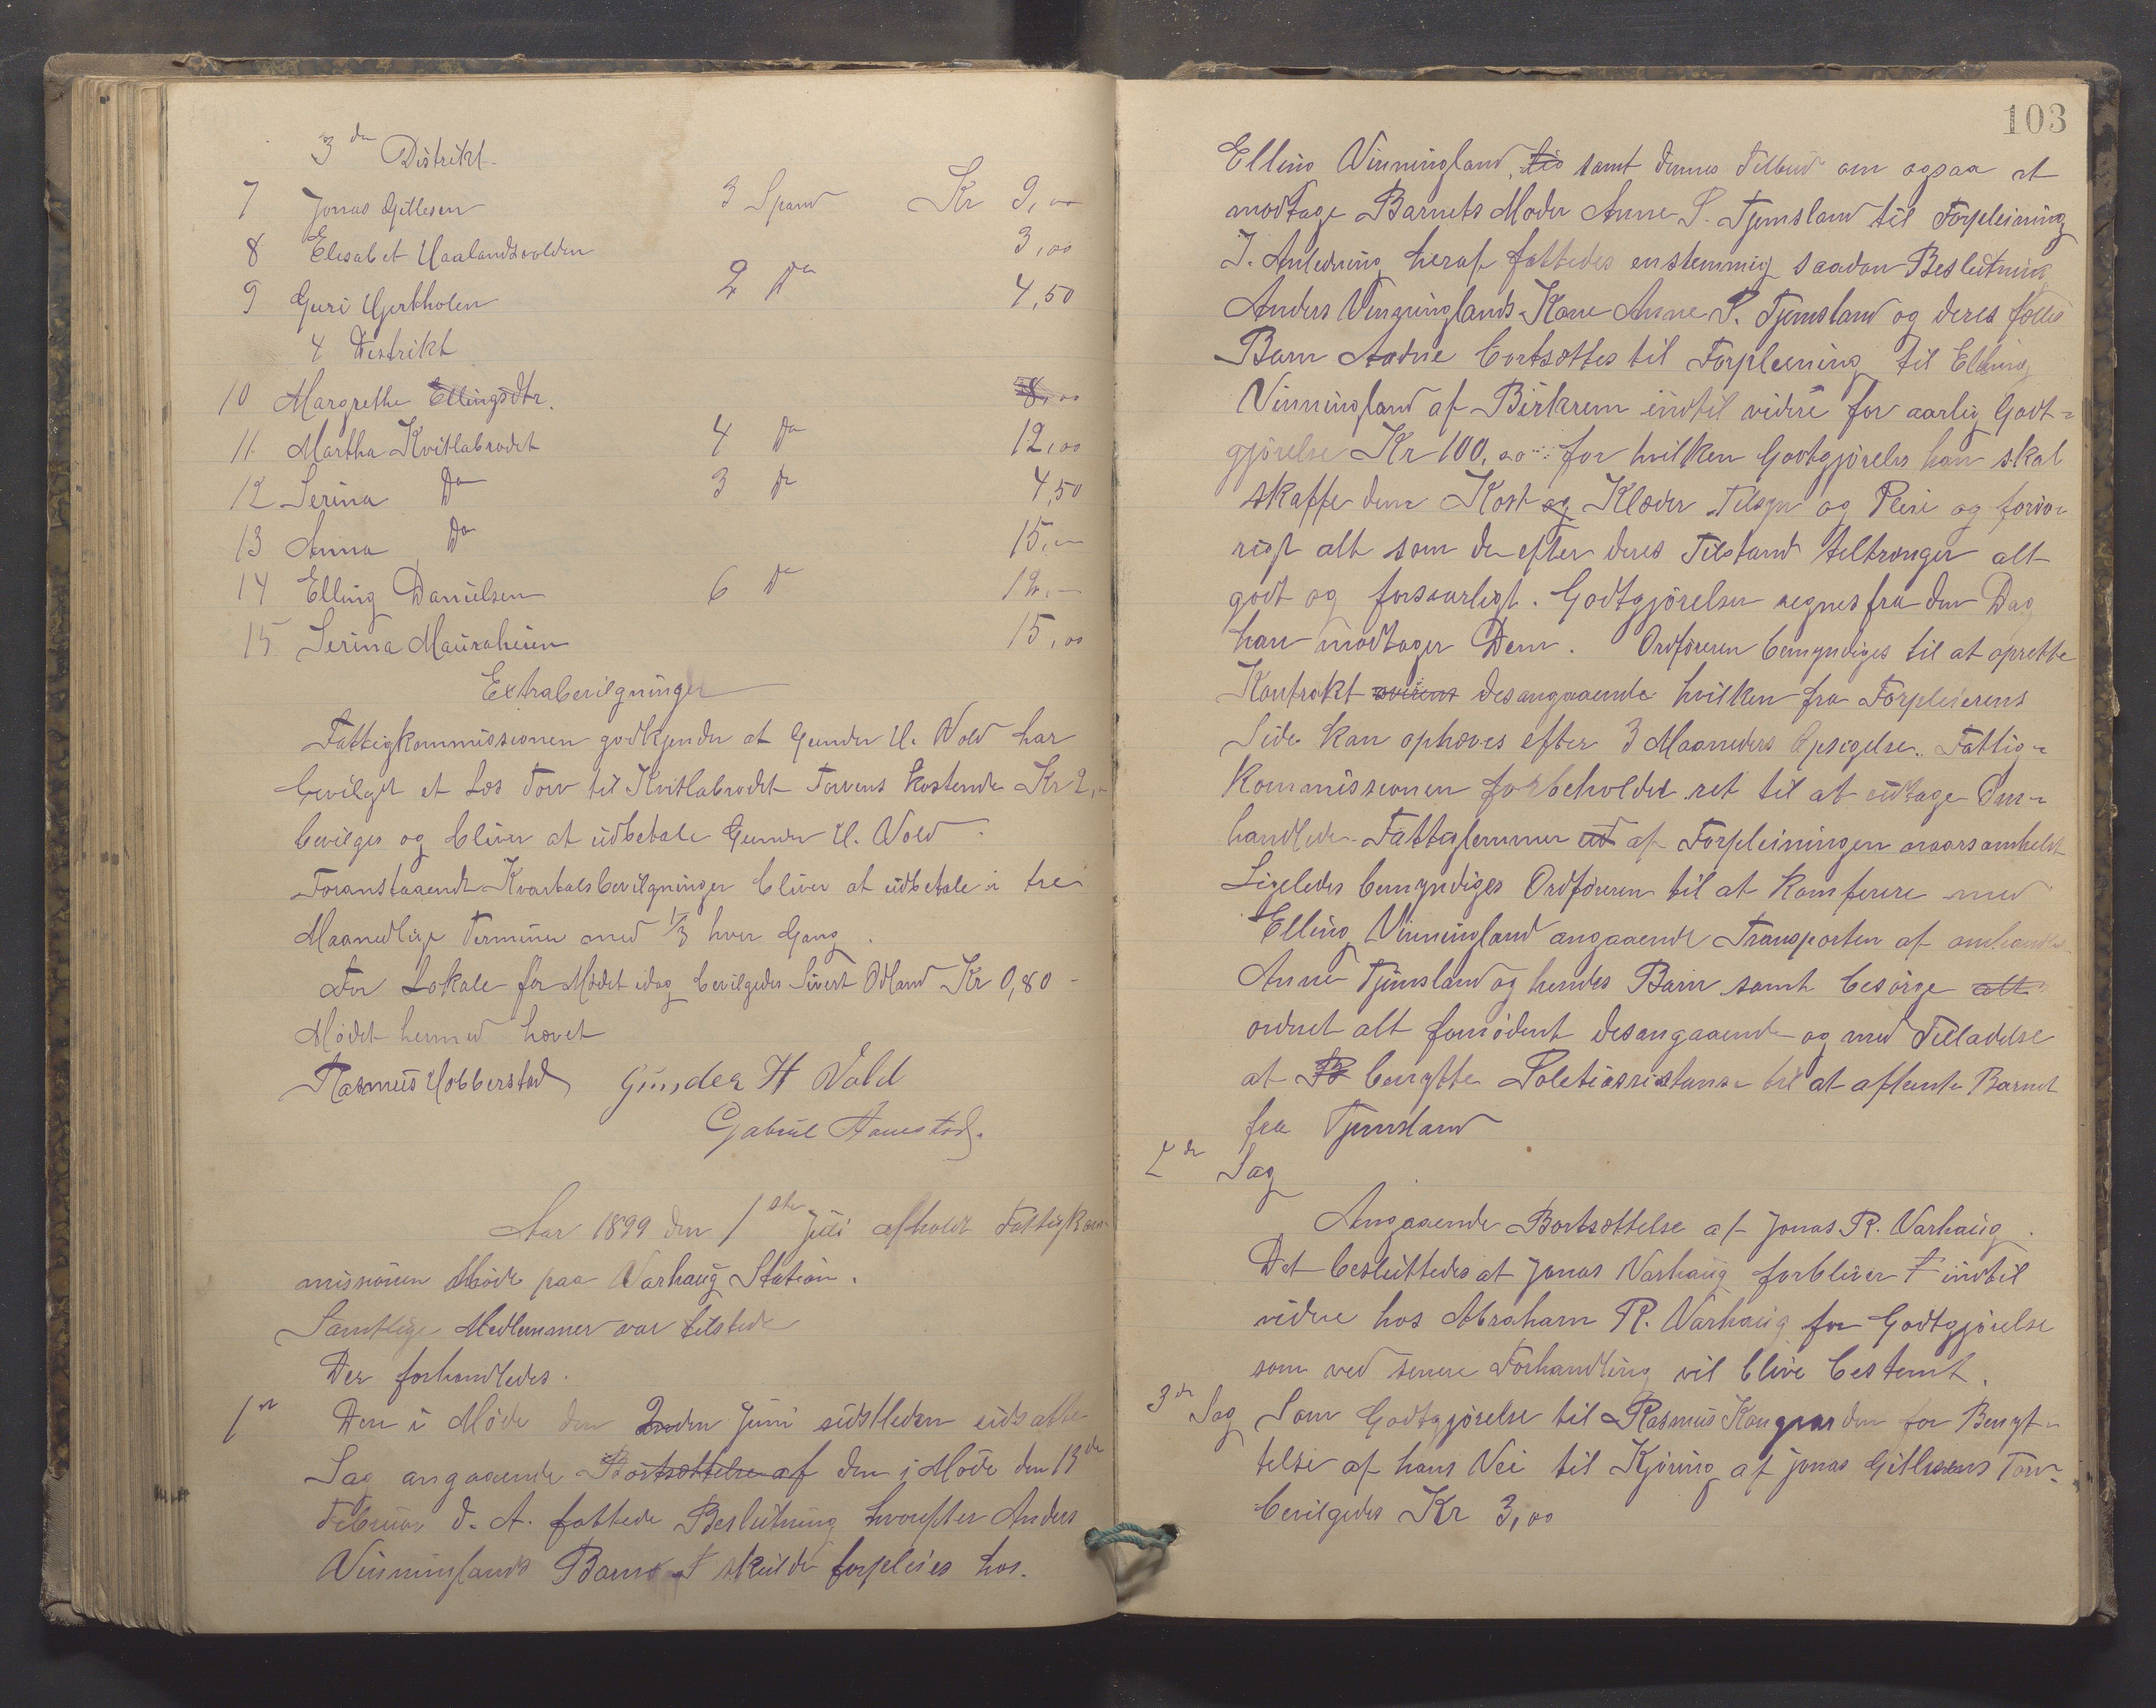 3die Distrikt
7 Jonas Gitlesen 3 Spand Kr 9,00
8 Elisabet Haalandsvolden 3,00
9 Guri Hjerkholen 2 Do 4,50
4 Distrikt
10 Margrethe Ellingsdtr. 8,00
11 Martha Kvitlabrodet 4 Do 12,00
12 Serina Do 3 Do 4,50
13 Anna Do 15,—
14 Elling Danielsen 6 Do 12,—
15 Serina Mauraheien 15,00
Extrabevilgninger
Fattigkommissionen godkjender at Gunder H. Vold har
bevilget et Læs Torv til Kvitlabrodet Torvens Kostende Kr 2,—
beviges og bliver at udbetale Gunder H. Vold
Foranstaaende Kvartalsbevilgninger bliver at udbetale i tre
Maanedlige Terminer med 1/3 hver Gang.
For Lokale for Mødet idag bevilgedes Sivert Ødland Kr 0,80
Mødet hermed hævet
Rasmus Hobberstad Gunder H Vold
Gabriel Aanestad.
Aar 1899 den 1ste Juli afholdt Fattigkom-
missionen Møde paa Varhaug Station.
Samtlige Medlemmer var tilstede
Der forhandledes.
1ste Den i Møde den 2den Juni sidstleden udsatte
Sag angaaende Bortsættelse af den i Møde den 13de
Februar d. A. fattede Beslutning hvorefter Anders
Vinninglands Barn skulde forpleies hos.
103
Elling Vinningland, samt dennes Tilbud om ogsaa at
modtage Barnets Moder Anne P. Tjemsland til Forpleining
I. Anledning heraf fattedes enstemmig saadan Beslutning
Anders Vinninglands Kone Anne P. Tjemsland og deres fælles
Barn Andrie bortsættes til Forpleening til Elling
Vinningland af Birkrem indtil videre for aarlig Godt-
gjørelse Kr 100,00 for hvilken Godtgjørelse han skal
skaffe dem Kost og Klæder Tilsyn og Pleie og forøv-
rigt alt som de efter deres Tilstand tiltrænger alt
godt og forsvarligt. Godtgjørelsen regnes fra den Dag
han modtager Dem. Ordføreren bemyndiges til at oprette
Kontrakt desangaaende hvilken fra Forpleierens
Side kan ophæves efter 3 Maaneders Opsigelse. Fattig-
kommissionen forbeholder ret til at udtage Om-
handlede Fattiglemmer ud af Forpleiningen naarsomhelst
Ligeledes bemyndiges Ordføreren til at konferere med
Elling Vinningland angaaende Transporten af omhandlede
Anne Tjemsland og hendes Barn samt besørge alt
ordnet alt fornødent desangaaende og med Tilladelse
at benytte Politiassistanse til at afhente Barnet
fra Tjemsland
2de Sag
Angaaende Bortsættelse af Jonas R. Varhaug.
Det besluttedes at Jonas Varhaug forbliver indtil
videre hos Abraham R. Varhaug for Godtgjørelse
som ved senere Forhandling vil blive bestemt.
3de Sag Som Godtgjørelse til Rasmus Kongvarden for Benyt-
telse af hans Vei til Kjøring af Jonas Gitlesens Torv
bevilgedes Kr 3,00